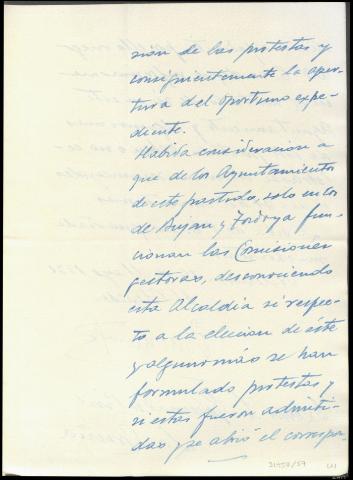 sion de las protestas y
consiguientemente la aper-
tura del oportuno expe-
diente.
Habida consideracion a
que de los Ayuntamientos
de este partido, solo en los
de Bujan y Tordoya fun-
cionan las Comisiones
gestoras, desconociendo
esta Alcaldia si respec-
to a la eleccion de éste
y alguno más se han
formulado protestas y
si estas fueron admiti-
das y se abrió el correspon-
31450/57